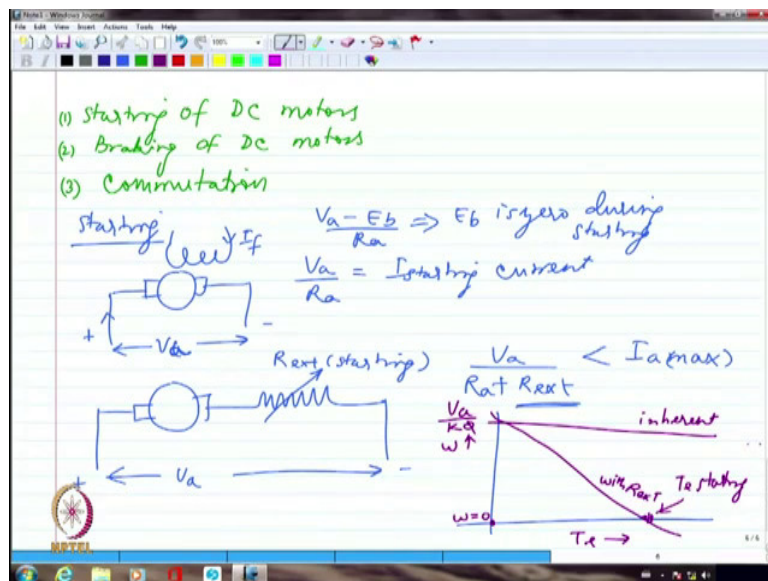 Note1 - Windows Journal
File Edit View Insert Actions Tools Help
100%
B I
(1) Starting of DC motors
(2) Braking of DC motors
(3) Commutation
Starting
If
Va - Eb / Ra ⇒ Eb is zero during starting
Va / Ra = Istarting current
+ Va -
Rext (starting)
Va / Ra + Rext < Ia(max)
+ Va -
Va / KΦ
ω ↑
inherent
with Rext
Te starting
ω=0
Te →
NPTEL
6/6
6